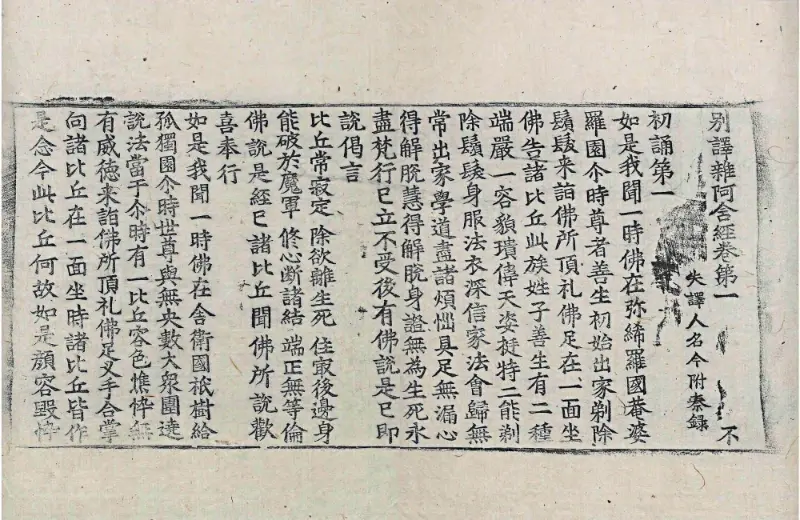 別譯雜阿含經卷第一 不
失譯人名今附秦録
初誦第一
如是我聞一時佛在弥絺羅國菴婆
羅園尒時尊者善生初始出家剃除
鬚髮来詣佛所頂礼佛足在一面坐
佛告諸比丘此族姓子善生有二種
端嚴一容貌瓌偉天姿挺特二能剃
除鬚髮身服法衣深信家法會歸無
常出家學道盡諸煩惱具足無漏心
得解脫慧得解脫身證無為生死永
盡梵行已立不受後有佛說是已即
說偈言
比丘常寂定 除欲離生死 住㝡後邊身
能破於魔軍 修心斷諸結 端正無等倫
佛說是經已諸比丘聞佛所說歡
喜奉行
如是我聞一時佛在舍衛國祇樹給
孤獨園尒時世尊與無央數大衆圍遶
說法當于尒時有一比丘容色憔悴無
有威德来詣佛所頂礼佛足叉手合掌
向諸比丘在一面坐時諸比丘皆作
是念今此比丘何故如是顔容毀悴